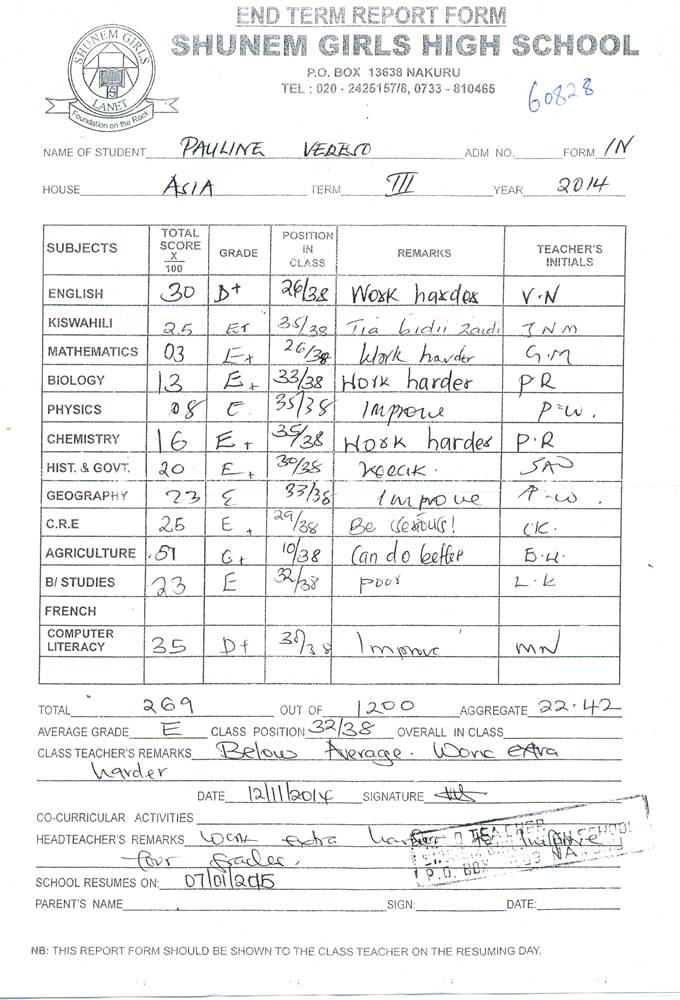 END TERM REPORT FORM
SHUNEM GIRLS HIGH SCHOOL
P.O. BOX 13638 NAKURU
TEL : 020 - 2425157/8, 0733 - 810465
60828
SHUNEM GIRLS
LANET
Foundation on the Rock
NAME OF STUDENT PAULINE ADM NO. FORM 1N
HOUSE ASIA TERM III YEAR 2014
SUBJECTS TOTAL SCORE X/100 GRADE POSITION IN CLASS REMARKS TEACHER'S INITIALS
ENGLISH 30 D+ 26/38 Work harder V.N
KISWAHILI 25 35/38 Tia bidii zaidi JNM
MATHEMATICS 03 26/38 Work harder G.M
BIOLOGY 13 E+ 33/38 Work harder PR
PHYSICS 08 E 35/38 Improve P.W.
CHEMISTRY 16 E+ 35/38 Work harder P.R
HIST. & GOVT. 20 E+ 30/38
GEOGRAPHY 23 E 33/38 Improve
C.R.E 25 E+ 29/38 Be serious!
AGRICULTURE .51 C+ 10/38 Can do better
B/ STUDIES 23 E 32/38 poor L.K
FRENCH
COMPUTER LITERACY 35 D+ Improve MN
TOTAL 269 OUT OF 1200 AGGREGATE 22.42
AVERAGE GRADE E CLASS POSITION 32/38 OVERALL IN CLASS
CLASS TEACHER'S REMARKS Below Average. Work extra
harder
DATE 12/11/2014 SIGNATURE
CO-CURRICULAR ACTIVITIES
HEADTEACHER'S REMARKS Work extra harder to improve
your grades.
SCHOOL RESUMES ON: 07/01/2015
PARENT'S NAME SIGN: DATE:
NB: THIS REPORT FORM SHOULD BE SHOWN TO THE CLASS TEACHER ON THE RESUMING DAY.